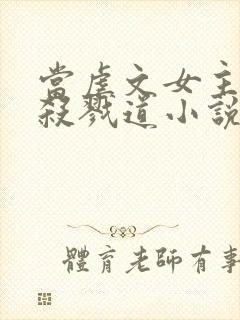 當虐文女主
殺戮道小說
體育老師有事